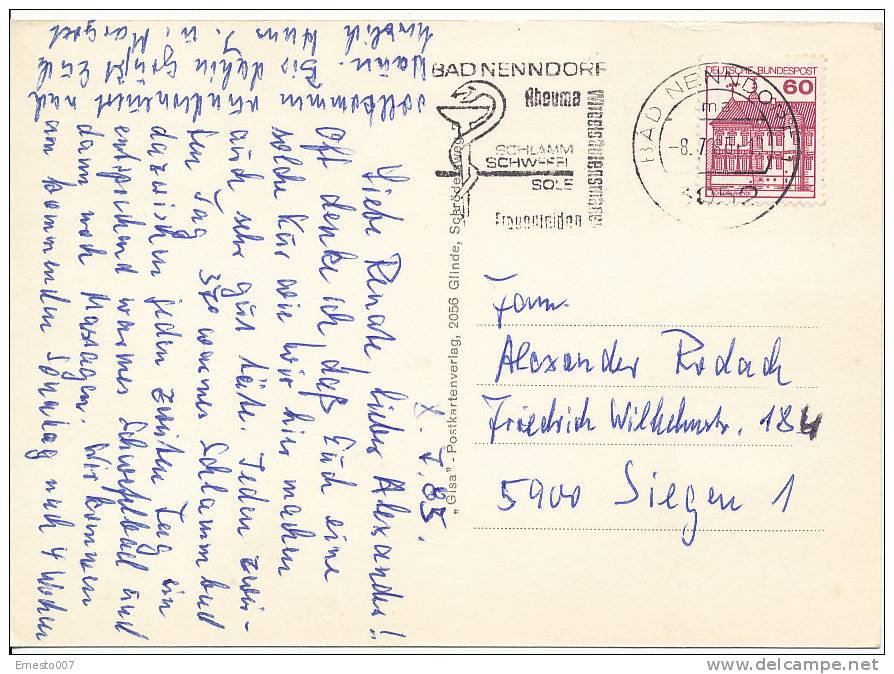 8.7.85.
Liebe Renate, lieber Alexander!
Oft denke ich, daß Euch eine
solche Kur wie wir hier machen
auch sehr gut täte. Jeden zwei-
ten Tag 37° warmes Schlammbad
dazwischen jeden zweiten Tag ein
entsprechend warmes Schwefelbad und
dann noch Massagen. Wir kommen
am kommenden Sonntag nach 4 Wochen
vollkommen nach
Hause. Bis dahin grüßt Euch
herzlich J. u. Margret
BAD NENNDORF
Rheuma
Wirbelsäulensyndrome
SCHLAMM
SCHWEFEL
SOLE
Frauenleiden
BAD NENNDORF 1
-8.7.85
3052
DEUTSCHE BUNDESPOST
60
„Gisa" - Postkartenverlag, 2056 Glinde, Schröderweg
Fam.
Alexander Rodach
Friedrich Wilhelmstr. 184
5900 Siegen 1
Ernesto007
delcampe.net